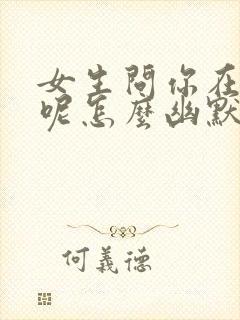 女生問你在
呢怎麼幽默
何義德